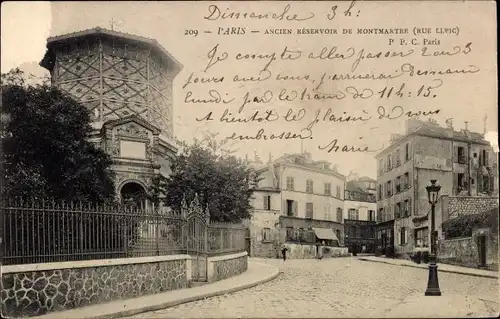 Dimanche 3 h.
209 - PARIS - ANCIEN RÉSERVOIR DE MONTMARTRE (RUE LEPIC)
P. P. C. Paris
Je compte aller passer 2 ou 3
jours avec vous, j'arriverai demain
lundi par le train de 11 h. 15.
A bientôt le plaisir de vous
embrasser.
Marie